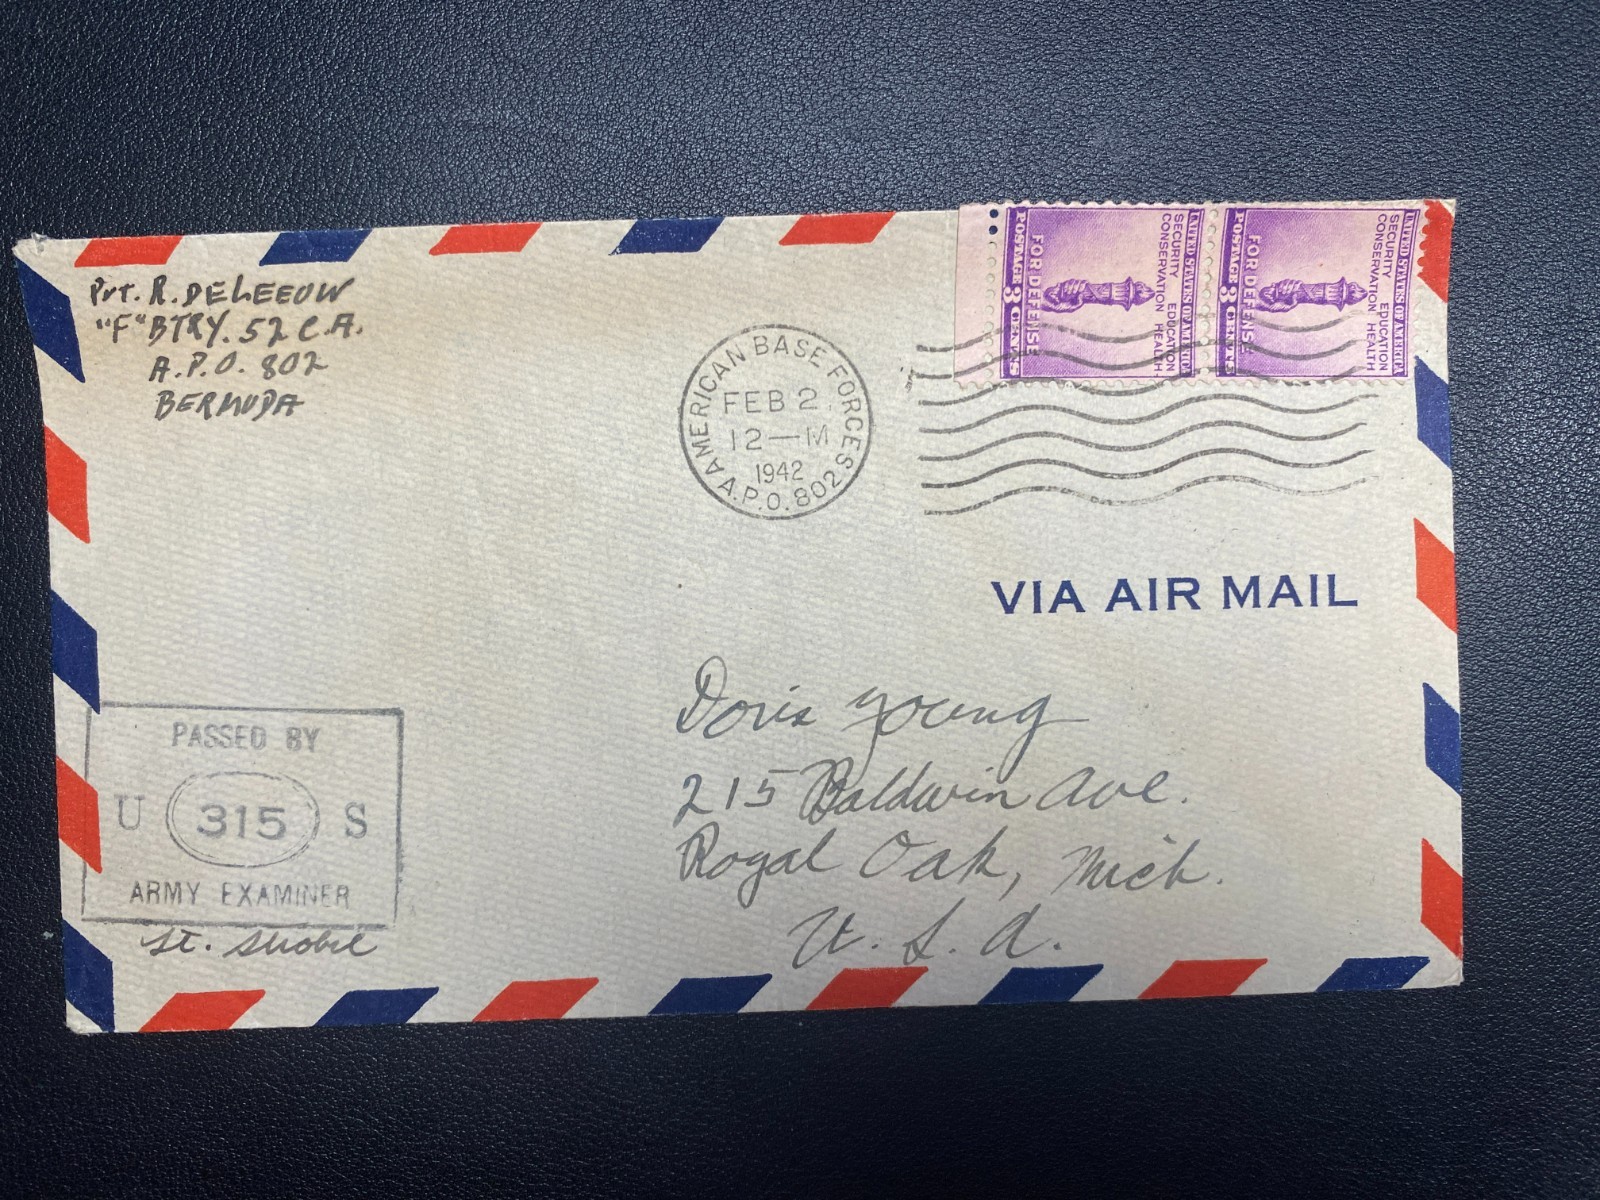 Pvt. R. DELEEUW
"F" BTRY. 52 C.A.
A.P.O. 802
BERMUDA
AMERICAN BASE FORCES
FEB 2
12—M
1942
A.P.O. 802
UNITED STATES OF AMERICA
SECURITY EDUCATION
CONSERVATION HEALTH
FOR DEFENSE
POSTAGE 3 CENTS
UNITED STATES OF AMERICA
SECURITY EDUCATION
CONSERVATION HEALTH
FOR DEFENSE
POSTAGE 3 CENTS
VIA AIR MAIL
Doris Young
215 Baldwin Ave.
Royal Oak, Mich.
U. S. A.
PASSED BY
U 315 S
ARMY EXAMINER
Lt.